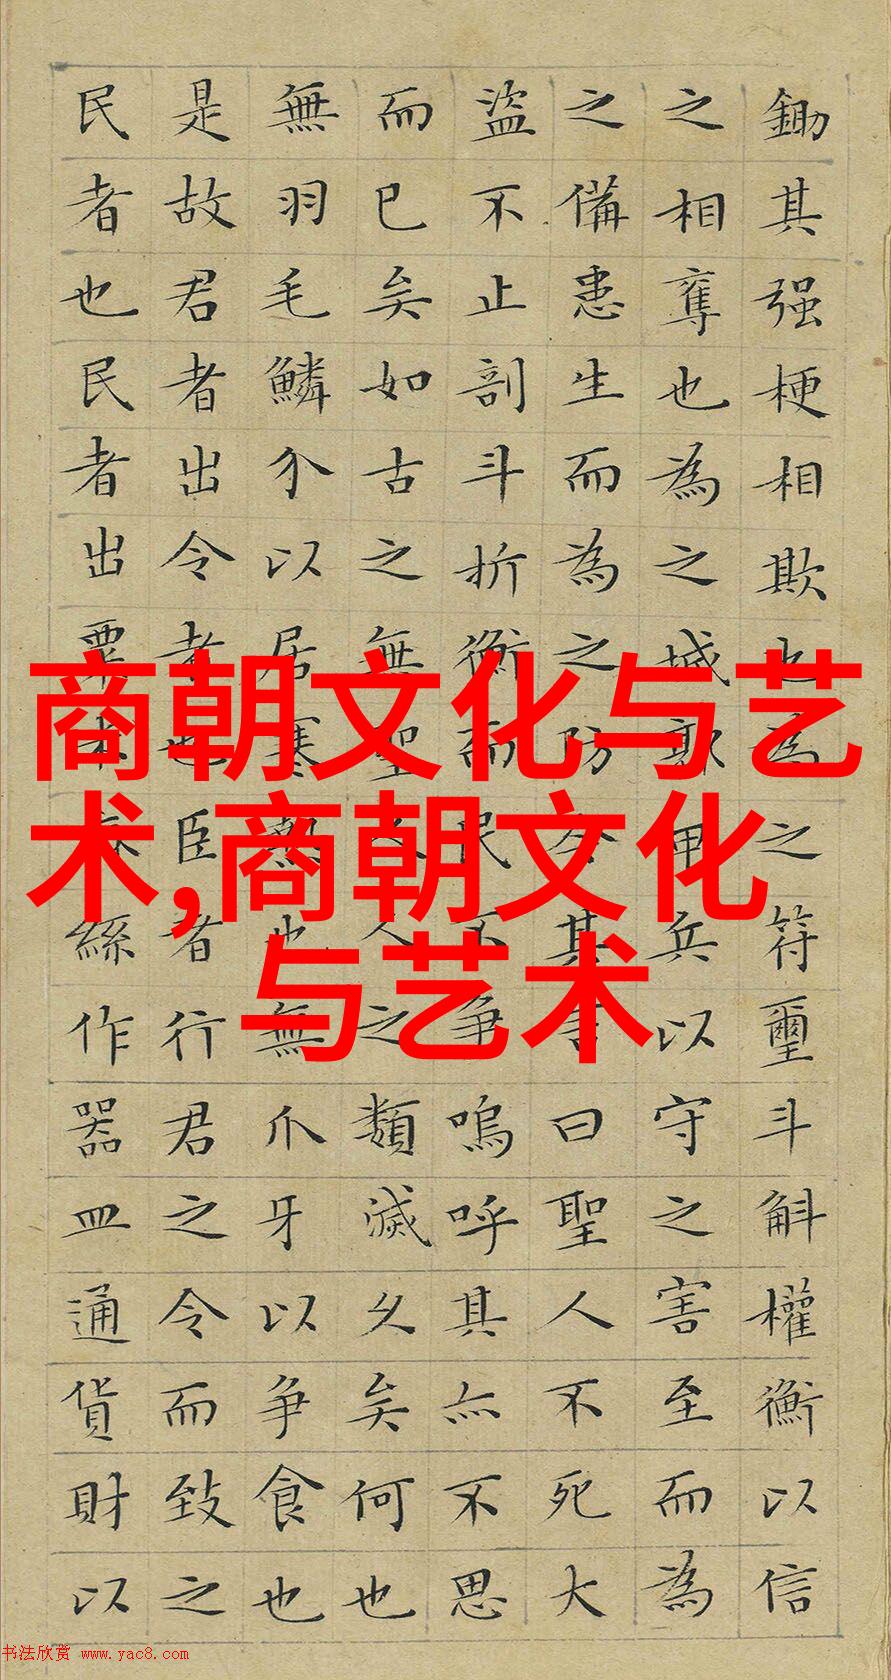 鋤其强梗相欺也為之符璽斗斛權衡以信
之相奪也為之城郭甲兵以守之害至而為
之備患生而為之防今其言曰聖人不死大
盜不止剖斗折衡而民不争嗚呼其亦不思
而已矣如古之無聖人人之類滅久矣何也
無羽毛鱗介以居寒熱也無爪牙以争食也
是故君者出令者也臣者行君之令而致之
民者也民者出粟米麻絲作器皿通貨財以
商朝文化与艺
术,商朝文化
与艺术
书法欣赏 www.yac8.com